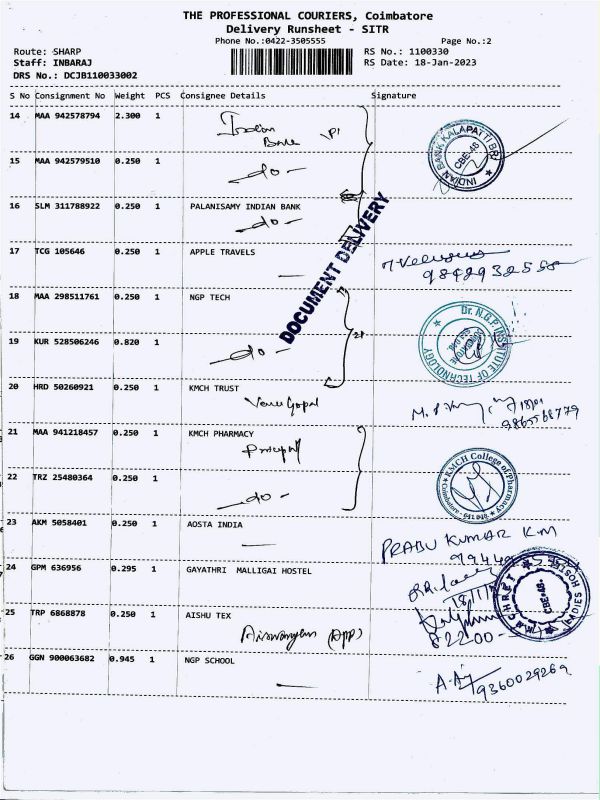 THE PROFESSIONAL COURIERS, Coimbatore
Delivery Runsheet - SITR
Phone No.:0422-3505555 Page No.:2
Route: SHARP RS No.: 1100330
Staff: INBARAJ RS Date: 18-Jan-2023
DRS No.: DCJB110033002
S No Consignment No Weight PCS Consignee Details Signature
14 MAA 942578794 2.300 1
Indian
Bank
INDIAN BANK KALAPATTI BR
CBE-48
15 MAA 942579510 0.250 1
-do-
16 SLM 311788922 0.250 1 PALANISAMY INDIAN BANK
-do-
DOCUMENT DELIVERY
17 TCG 105646 0.250 1 APPLE TRAVELS
18 MAA 298511761 0.250 1 NGP TECH
Dr. N.G.P. INSTITUTE OF TECHNOLOGY
19 KUR 528506246 0.820 1
-do-
20 HRD 50260921 0.250 1 KMCH TRUST
Venu Gopal
9865568779
21 MAA 941218457 0.250 1 KMCH PHARMACY
KMCH College of Pharmacy
22 TRZ 25480364 0.250 1
-do-
23 AKM 5058401 0.250 1 AOSTA INDIA
PRABU KUMAR K.M
24 GPM 636956 0.295 1 GAYATHRI MALLIGAI HOSTEL
CBE-48.
25 TRP 6868878 0.250 1 AISHU TEX
(APP)
82200-
26 GGN 900063682 0.945 1 NGP SCHOOL
9360029269